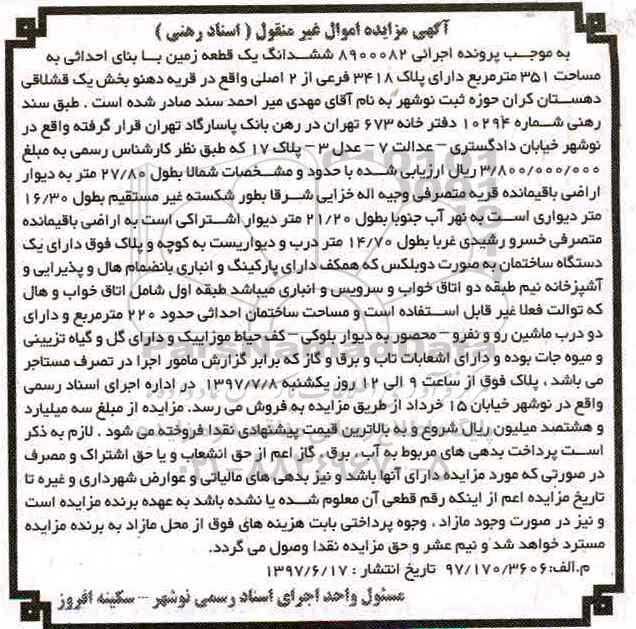 آگهی مزایده اموال غیر منقول ( اسناد رهنی )
به موجب پرونده اجرائی ۸۹۰۰۰۸۲ ششدانگ یک قطعه زمین با بنای احداثی به
مساحت ۳۵۱ مترمربع دارای پلاک ۳۴۱۸ فرعی از ۲ اصلی واقع در قریه دهنو بخش یک قشلاقی
دهستان کران حوزه ثبت نوشهر به نام آقای مهدی میر احمد سند صادر شده است . طبق سند
رهنی شماره ۱۰۲۹۴ دفتر خانه ۶۷۳ تهران در رهن بانک پاسارگاد تهران قرار گرفته واقع در
نوشهر خیابان دادگستری – عدالت ۷ – عدل ۳ – پلاک ۱۷ که طبق نظر کارشناس رسمی به مبلغ
۳/۸۰۰/۰۰۰/۰۰۰ ریال ارزیابی شده با حدود و مشخصات شمالا بطول ۲۷/۸۰ متر به دیوار
اراضی باقیمانده قریه متصرفی وجیه اله خزایی شرقا بطور شکسته غیر مستقیم بطول ۱۶/۳۰
متر دیواری است به نهر آب جنوبا بطول ۲۱/۲۰ متر دیوار اشتراکی است به اراضی باقیمانده
متصرفی خسرو رشیدی غربا بطول ۱۴/۷۰ متر درب و دیواریست به کوچه و پلاک فوق دارای یک
دستگاه ساختمان به صورت دوبلکس که همکف دارای پارکینگ و انباری بانضمام هال و پذیرایی و
آشپزخانه نیم طبقه دو اتاق خواب و سرویس و انباری میباشد طبقه اول شامل اتاق خواب و هال
که توالت فعلا غیر قابل استفاده است و مساحت ساختمان احداثی حدود ۲۲۰ مترمربع و دارای
دو درب ماشین رو و نفرو – محصور به دیوار بلوکی – کف حیاط موزاییک و دارای گل و گیاه تزیینی
و میوه جات بوده و دارای اشعابات تاب و برق و گاز که برابر گزارش مامور اجرا در تصرف مستاجر
می باشد ، پلاک فوق از ساعت ۹ الی ۱۲ روز یکشنبه ۱۳۹۷/۷/۸ در اداره اجرای اسناد رسمی
واقع در نوشهر خیابان ۱۵ خرداد از طریق مزایده به فروش می رسد. مزایده از مبلغ سه میلیارد
و هشتصد میلیون ریال شروع و به بالاترین قیمت پیشنهادی نقدا فروخته می شود . لازم به ذکر
است پرداخت بدهی های مربوط به آب ، برق ، گاز اعم از حق انشعاب و یا حق اشتراک و مصرف
در صورتی که مورد مزایده دارای آنها باشد و نیز بدهی های مالیاتی و عوارض شهرداری و غیره تا
تاریخ مزایده اعم از اینکه رقم قطعی آن معلوم شده یا نشده باشد به عهده برنده مزایده است
و نیز در صورت وجود مازاد ، وجوه پرداختی بابت هزینه های فوق از محل مازاد به برنده مزایده
مسترد خواهد شد و نیم عشر و حق مزایده نقدا وصول می گردد.
م.الف:۹۷/۱۷۰/۳۶۰۶ تاریخ انتشار : ۱۳۹۷/۶/۱۷
مسئول واحد اجرای اسناد رسمی نوشهر – سکینه افروز
ParsNamadData
۰۲۱-۸۸۳۴۹۶۷۰-۵